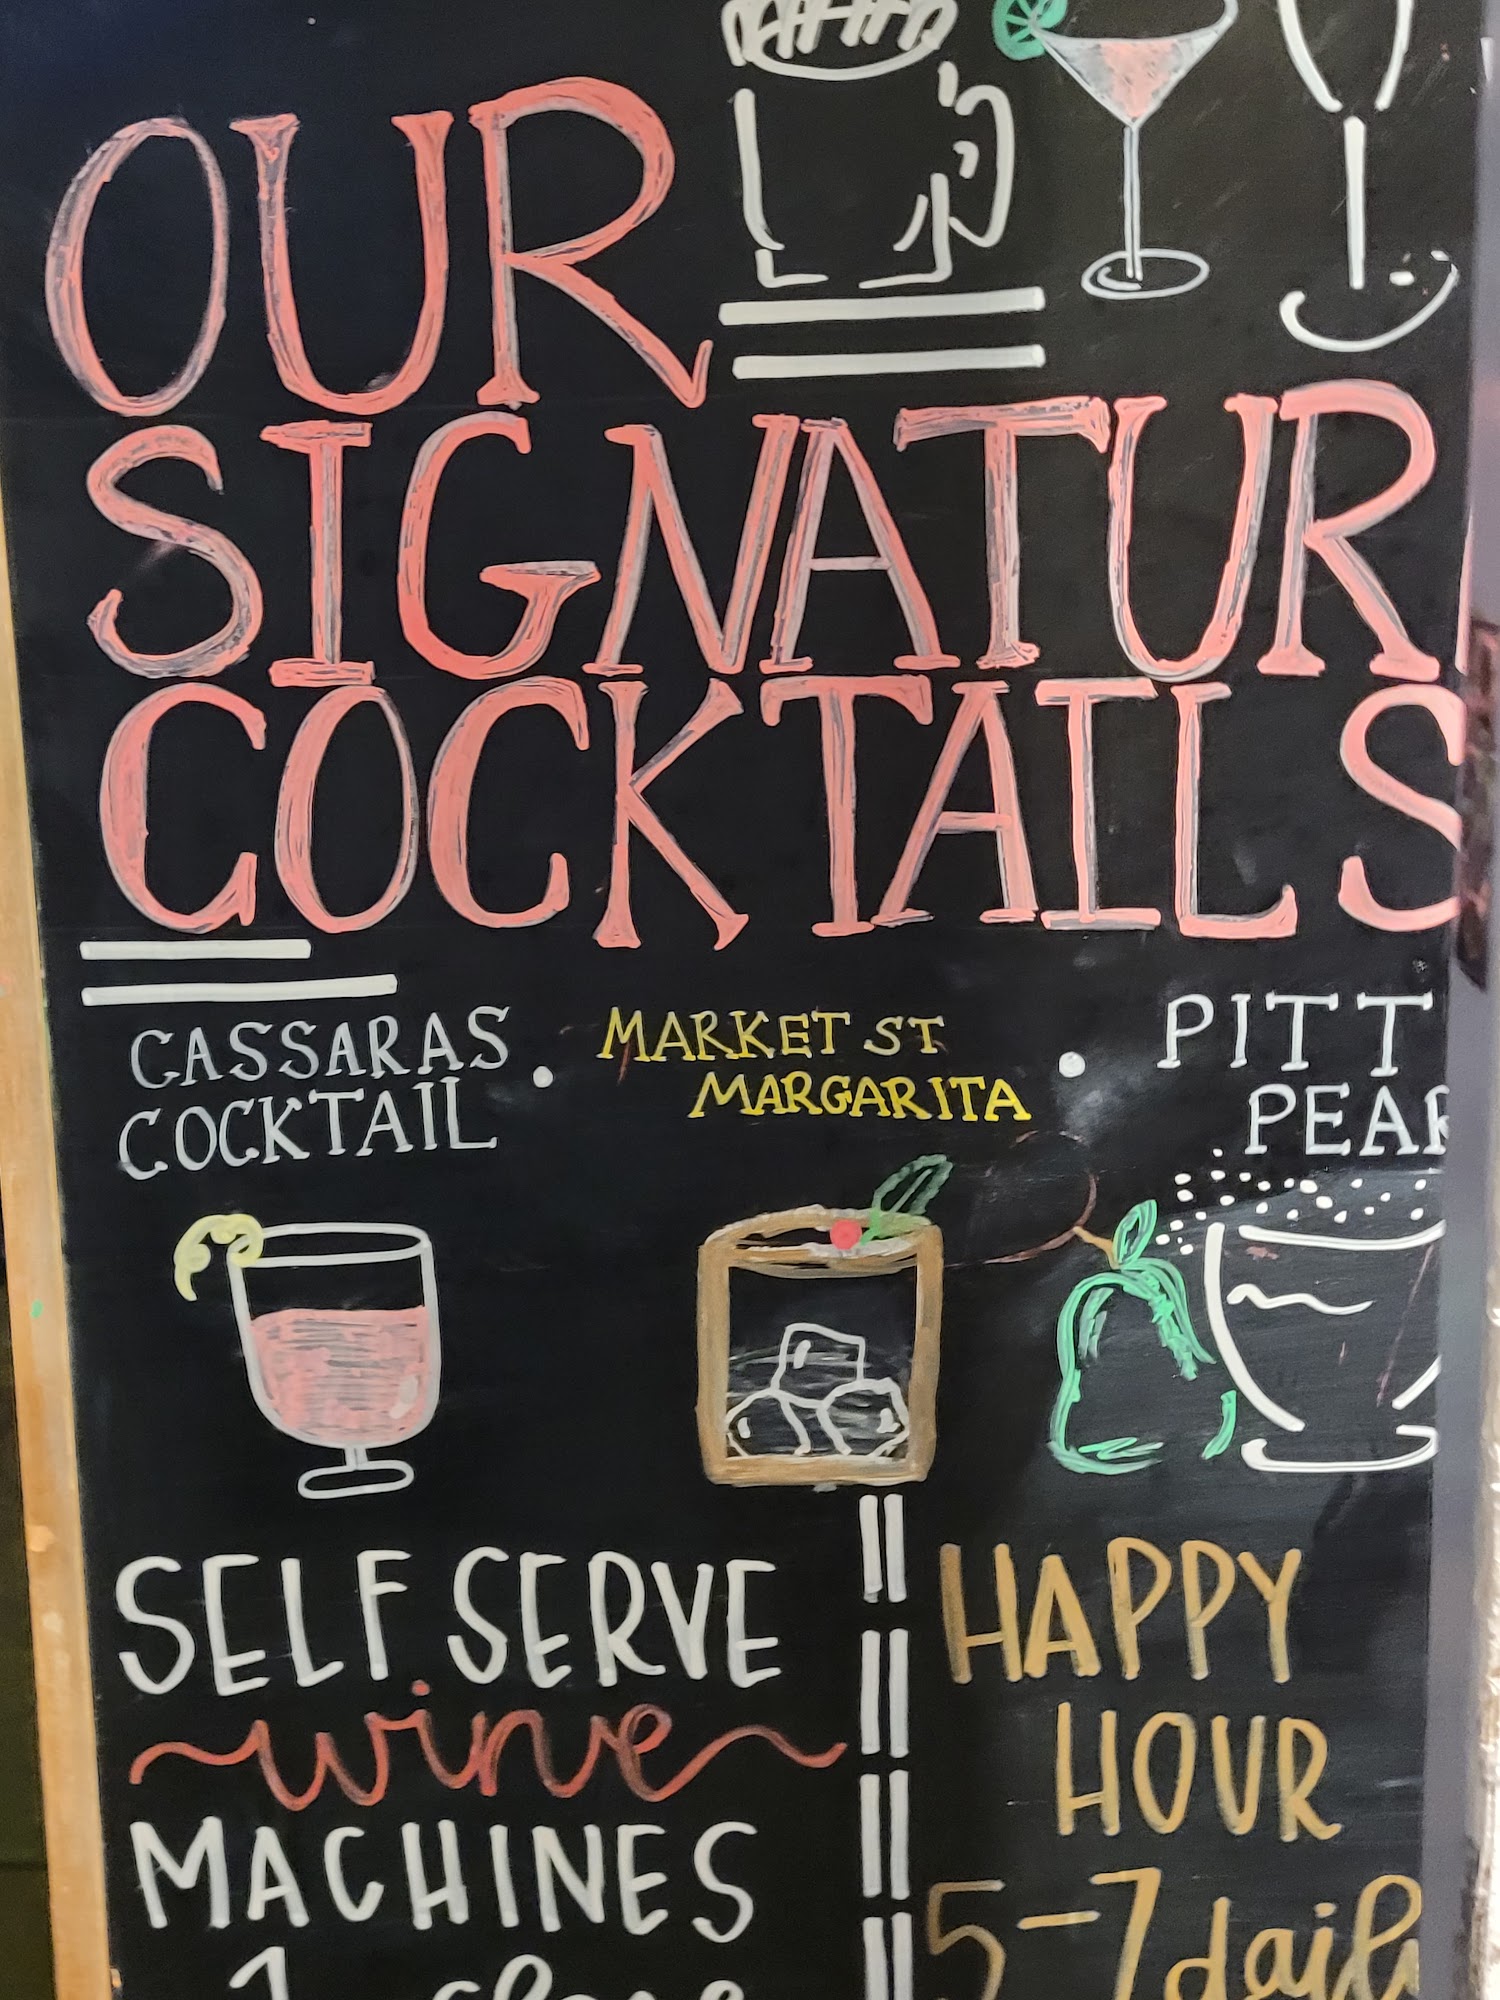 OUR
SIGNATUR
COCKTAILS
CASSARAS
COCKTAIL
•
MARKET ST
MARGARITA
•
PITT
PEAR
SELF SERVE
wine
MACHINES
HAPPY
HOUR
5-7 daily